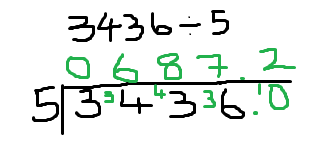 3436÷5
0 6 8 7.2
5 3 3 4 4 3 3 6.1 0